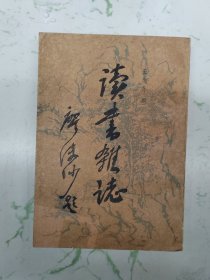 讀書雜誌
廖沫沙題